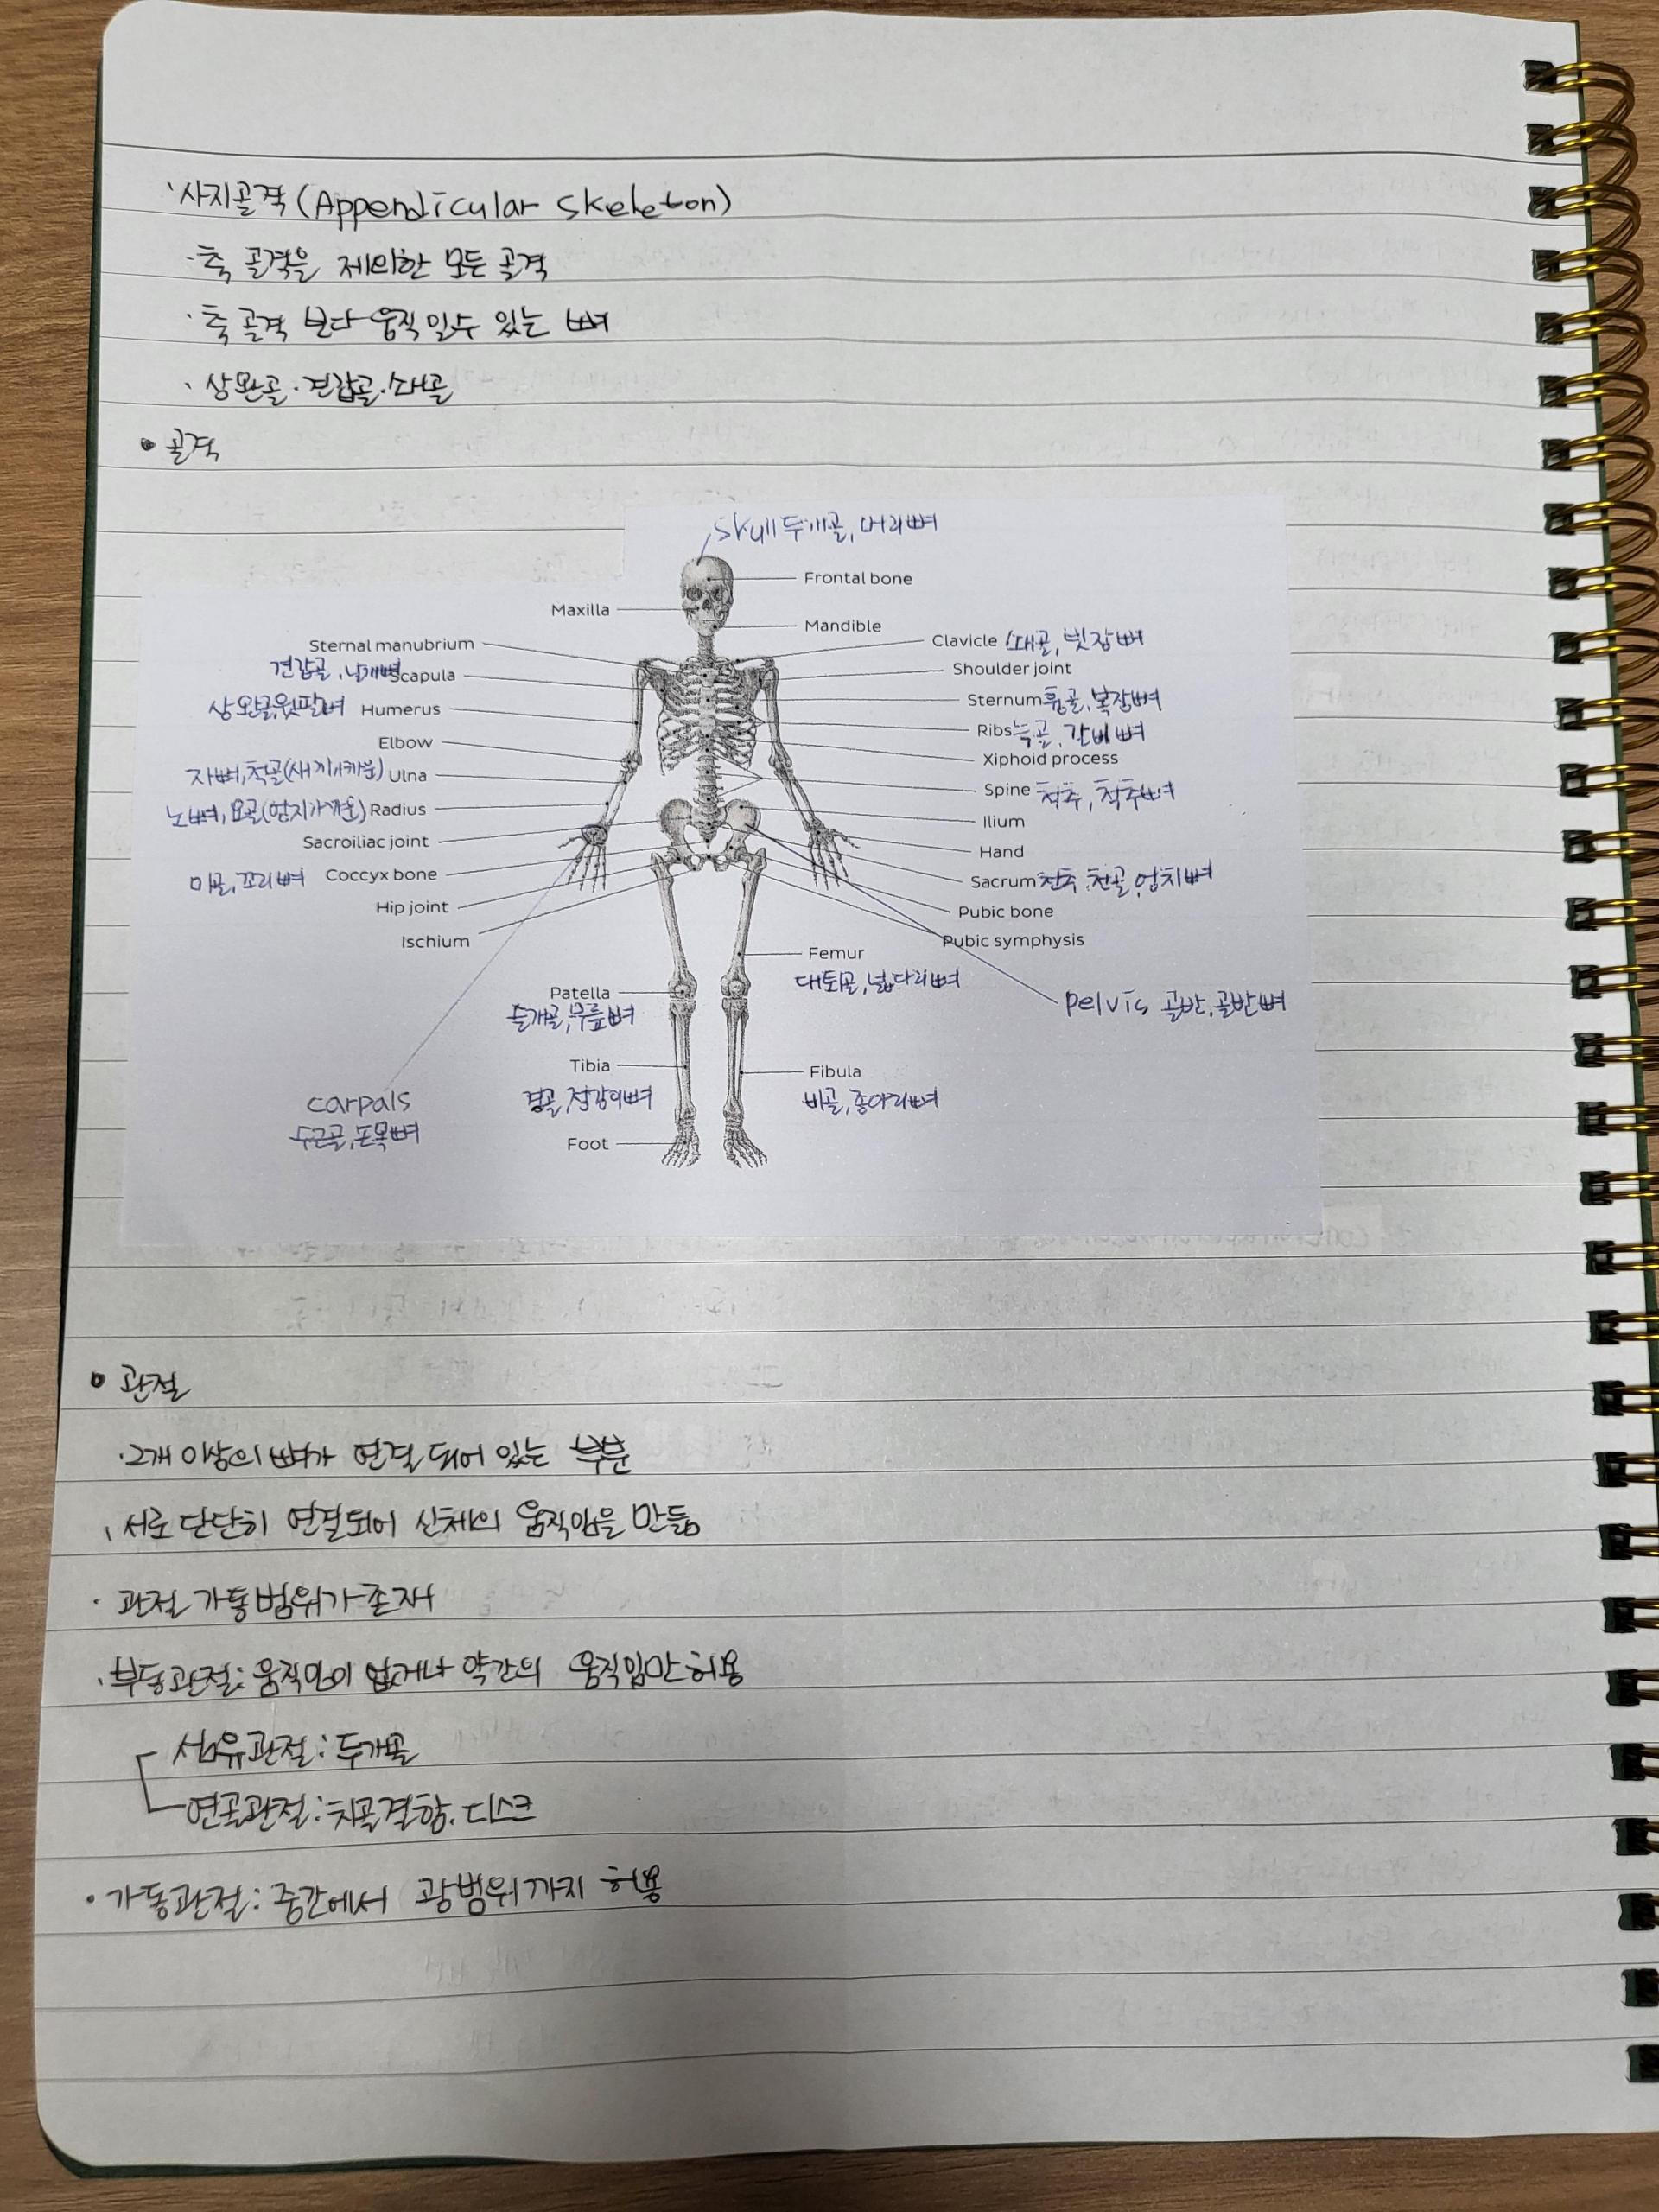 ·사지골격(Appendicular skeleton)
·축 골격을 제외한 모든 골격
·축 골격 보다 움직일수 있는 뼈
·상완골·견갑골·쇄골
• 골격
skull 두개골, 머리뼈
Frontal bone
Maxilla
Mandible
Sternal manubrium
Clavicle 쇄골, 빗장뼈
견갑골, 날개뼈 Scapula
Shoulder joint
상완골, 윗팔뼈 Humerus
Sternum 흉골, 복장뼈
Elbow
Ribs 늑골, 갈비뼈
Xiphoid process
자뼈, 척골(새끼 Ulna
Spine 척추, 척추뼈
노뼈, 요골(엄지 Radius
Ilium
Sacroiliac joint
Hand
미골, 꼬리뼈 Coccyx bone
Sacrum 천추, 천골, 엉치뼈
Hip joint
Pubic bone
Ischium
Pubic symphysis
Femur
대퇴골, 넓다리뼈
Patella
pelvis 골반, 골반뼈
슬개골, 무릎뼈
Tibia
Fibula
경골, 정강이뼈
비골, 종아리뼈
carpals
수근골, 손목뼈
Foot
• 관절
·2개 이상의 뼈가 연결 되어 있는 부분
·서로 단단히 연결되어 신체의 움직임을 만듦
·관절 가동범위가 존재
·부동관절: 움직임이 없거나 약간의 움직임만 허용
섬유관절: 두개골
연골관절: 치골결합. 디스크
·가동관절: 중간에서 광범위까지 허용